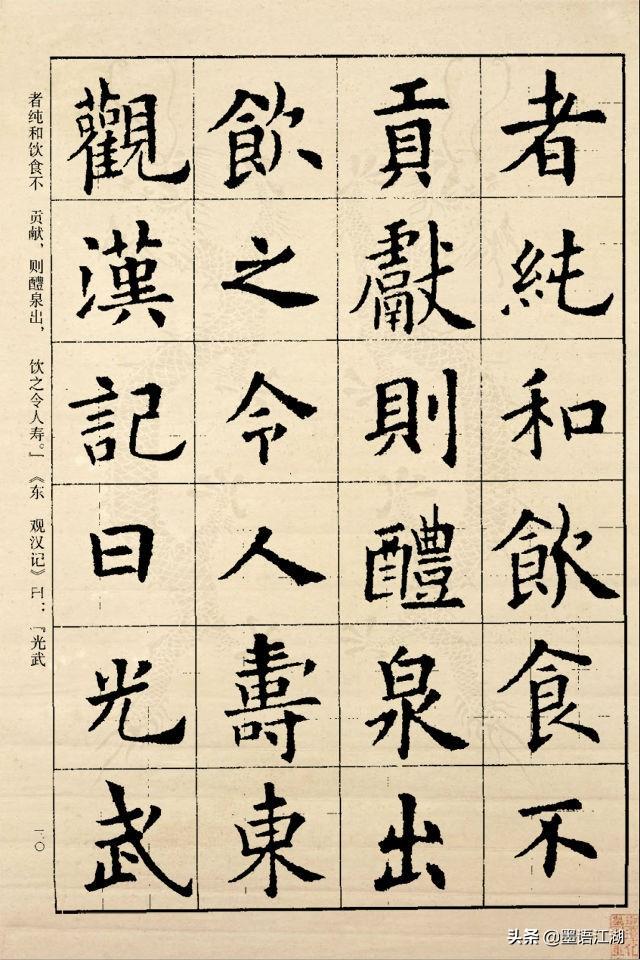 者純和飲食不
貢獻則醴泉出
飲之令人壽東
觀漢記曰光武
者纯和饮食不 贡献，则醴泉出， 饮之令人寿。」《东 观汉记》曰：『光武
一〇
头条 @墨语江湖